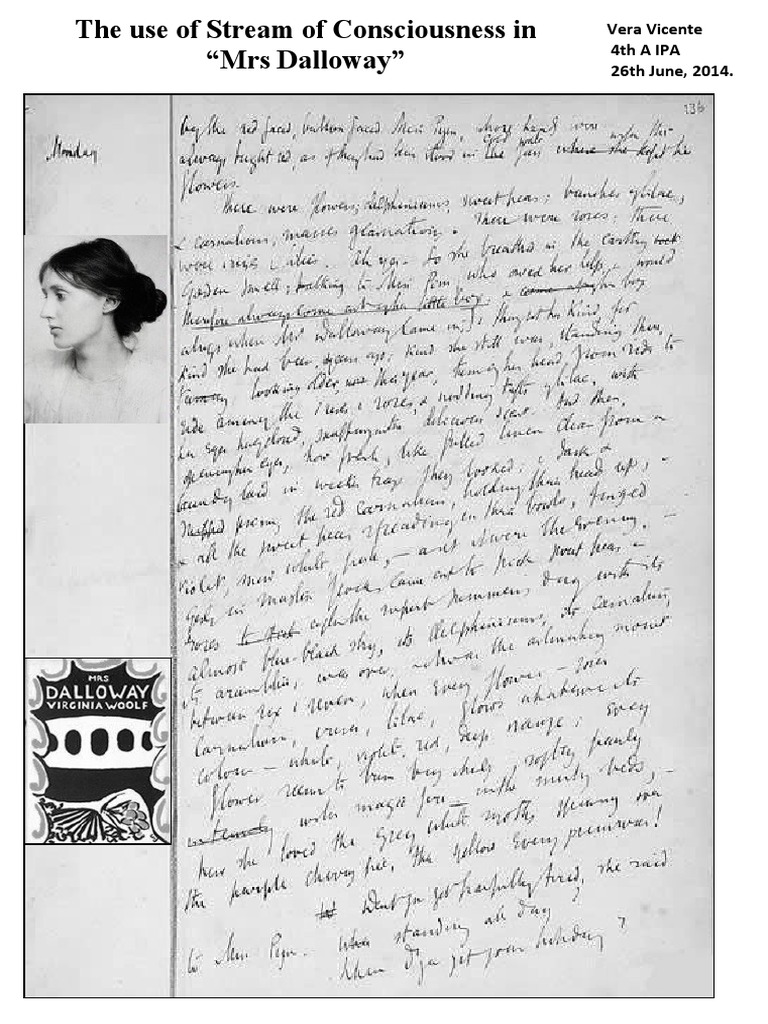 The use of Stream of Consciousness in
“Mrs Dalloway”
Vera Vicente
4th A IPA
26th June, 2014.
136
Monday
by the red faced, button faced Miss Pym, whose hands were
always bright red, as if they had been stood in cold water
flowers.
There were flowers; delphiniums, sweet peas; bunches of lilac;
& carnations, masses of carnations. There were roses; there
were irises. Ah yes. So she breathed in the earthy
garden smell; talking to Miss Pym, who owed her help, & would
always when Mrs Dalloway came in; thought her kind, for
kind she had been, years ago; kind she still was, standing there,
looking older this year, turning her head from side to
side among the irises & roses, & nodding tufts of lilac, with
her eyes half closed, snuffing in the delicious scent. And then,
opening her eyes, how fresh, like frilled linen clean from a
laundry laid in wicker trays they looked; & dark &
the red carnations, holding their heads up; &
all the sweet peas spreading in their bowls, tinged
violet, snow white, pale, — as if it were the evening, —
girls in muslin frocks came out to pick sweet peas &
roses after the superb summers day with its
almost blue-black sky, its delphiniums, its carnations,
its arum lilies, was over, & it was the moment
between six & seven, when every flower — roses
carnations, irises, lilac, glows
white, violet, red, deep orange; every
flower seems to burn by itself, softly, purely
in the misty beds, —
how she loved the grey white moths spinning over
the cherry pie, the yellow evening primroses!
tired, she said
to Miss Pym. standing all day
When d'you get your holiday?
MRS
DALLOWAY
VIRGINIA WOOLF